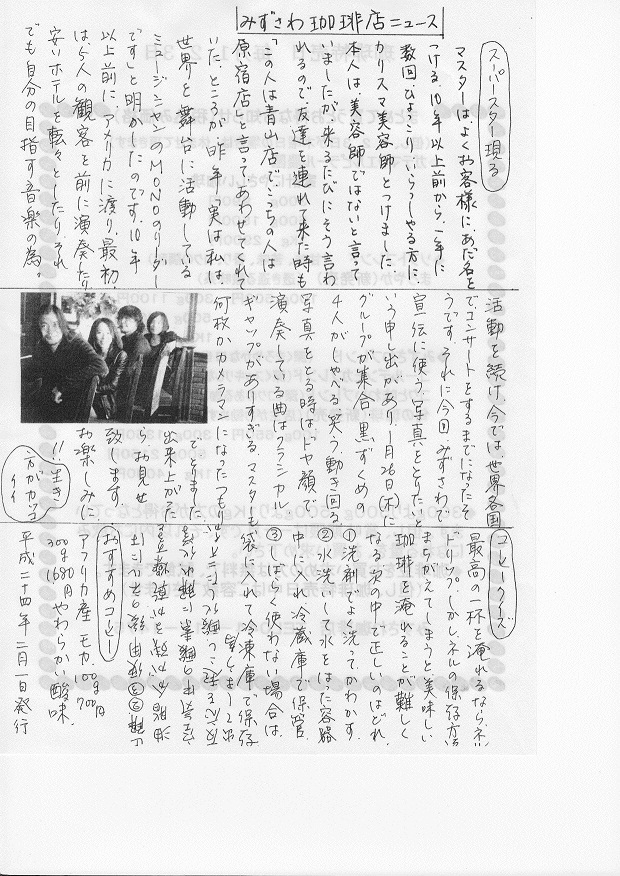 みずさわ珈琲店ニュース
スーパースター現る
マスターはよくお客様に、あだ名を
つける。10年以上前から、一年に
数回ひょっこりいらっしゃる方に、
カリスマ美容師とつけました。
本人は、美容師ではないと言って
いましたが来るたびにそう言わ
れるので友達を連れて来た時も
「この人は青山店で、こちの人は
原宿店と言ってあわせてくれて
いた。ところが、昨年「実は私は、
世界を舞台に活動している
ミュージシャンのMONOのリーダー
です」と明かしたのです。10年
以上前に、アメリカに渡り、最初
は5人の観客を前に演奏したり
安いホテルを転々としたり、それ
でも自分の目指す音楽の為。
活動を続け、今では、世界各国
でコンサートをするまでになったそ
うです。それに今回みずさわで
宣伝に使う写真をとりたいと
いう申し出があり、1月26日(木)に
グループが集合、黒ずくめの
4人がしゃべる笑う動き回る
写真をとる時は「ドヤ顔」
演奏してる曲はクラシカル
ギャップがありすぎる。マスターも
何枚かカメラマンになったつも
りでとりました
出来上がった
らお見せ
致ます。
お楽しみに
!!生き
方がカッコ
イイ
コーヒークイズ
最高の一杯を淹れるなら、ネル
ドリップ。しかしネルの保存方法
まちがえてしまうと美味しい
珈琲を淹れることが難しく
なる次の中で正しいのはどれ。
①洗剤でよく洗ってかわかす。
②水洗いして水をはった容器
中に入れ冷蔵庫で保管。
③しばらく使わない場合は、
袋に入れて冷凍庫で保存
おすすめコーヒー
アフリカ産 モカ 100g 700円
300g 1680円 やわらかい酸味。
平成二十四年 二月一日発行